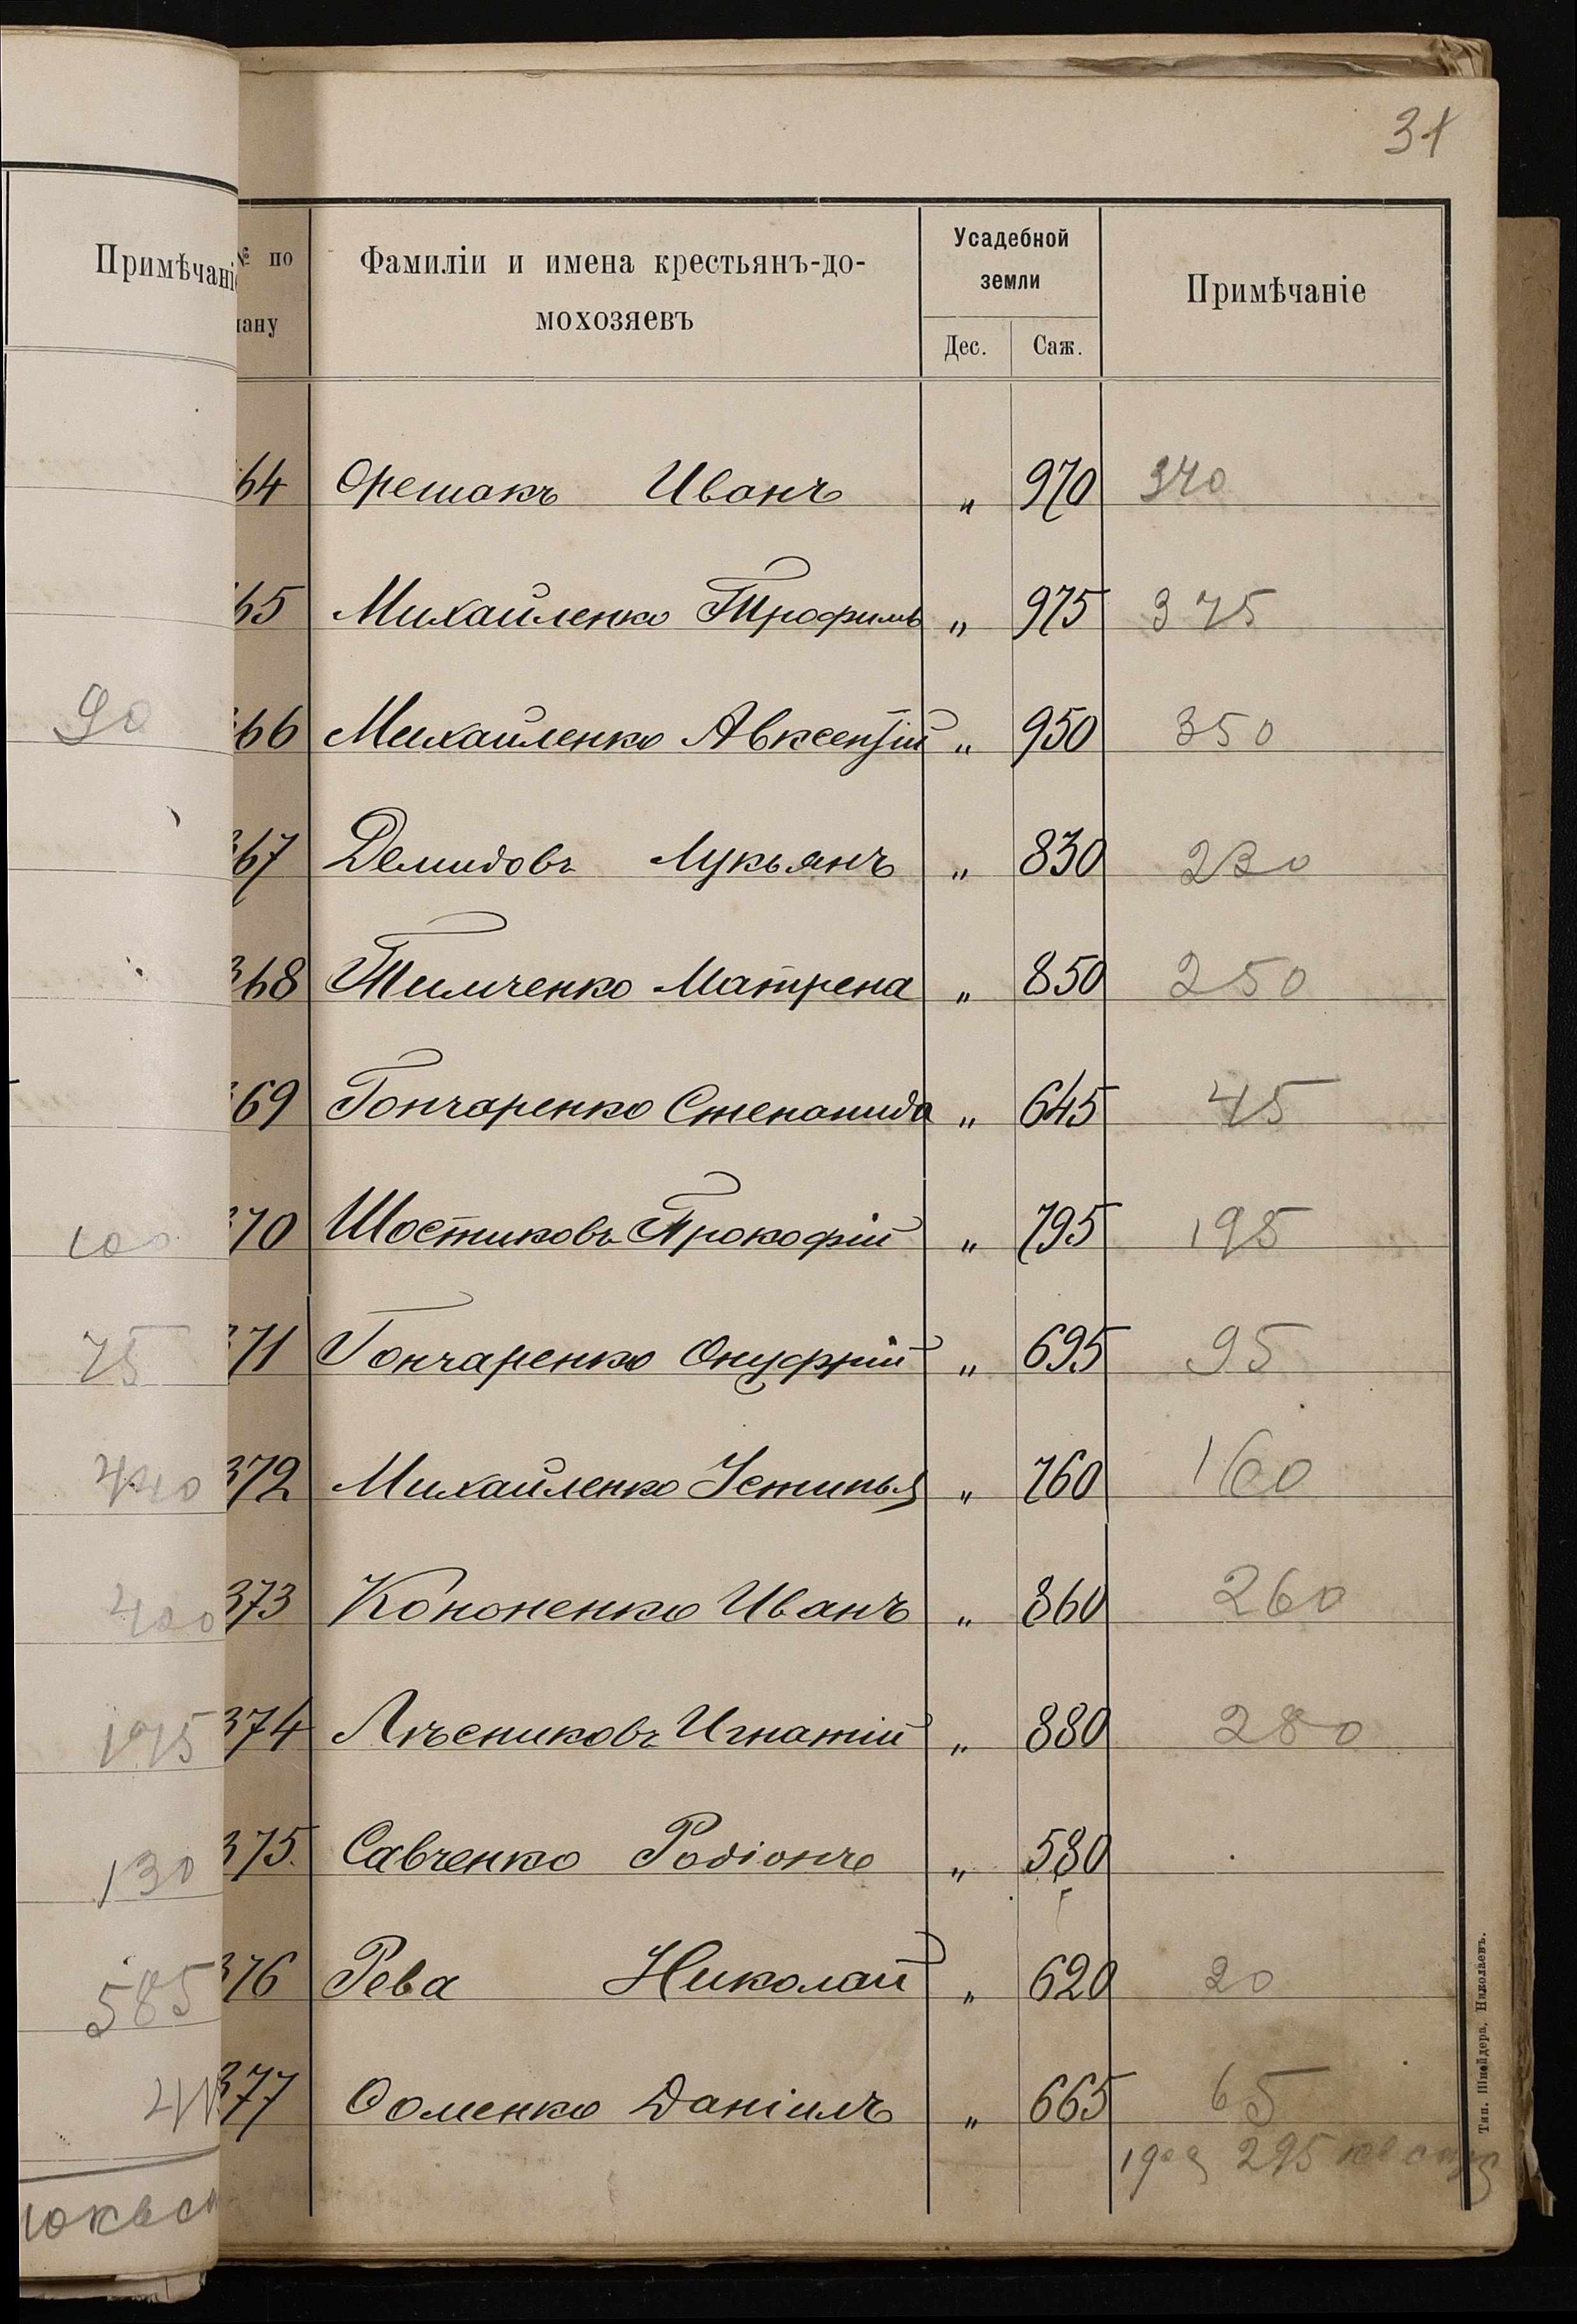 31
Примѣчаніе
№ по
лану
Фамиліи и имена крестьянъ-до-
мохозяевъ
Усадебной
земли
Дес.
Саж.
Примѣчаніе
64 Орешакъ Иванъ „ 970 370
65 Михайленко Трофимъ „ 975 375
90
366 Михайленко Авксентій „ 950 350
367 Демидовъ Лукьянъ „ 830 230
368 Тимченко Матрена „ 850 250
369 Гончаренко Степанида „ 645 45
100
370 Шостиковъ Прокофій „ 795 195
75
371 Гончаренко Онуфрій „ 695 95
440
372 Михайленко Устинья „ 760 160
400
373 Кононенко Иванъ „ 860 260
195
374 Лѣсниковъ Игнатій „ 880 280
130
375. Савченко Родіонъ „ 580
585
376 Рева Николай „ 620 20
377 Фоменко Даніилъ „ 665 65
295 кв саж
Тип. Шнейдера, Николаевъ.